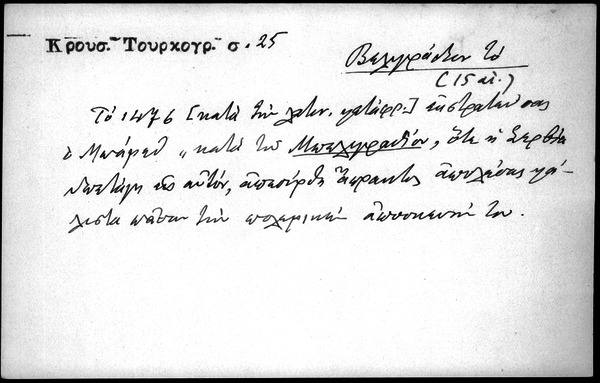 Κρουσ. Τουρκογρ. σ. 25
Βελιγράδιον τὸ
(15 αἰ.)
Τὸ 1476 [κατὰ τὴν λατιν. μετάφρ.] ἐκστρατεύσας
ὁ Μεχμὲτ „κατὰ τοῦ Μπελιγραδίου, ὅτε ἡ Σερβία
ὑπετάγη εἰς αὐτόν, ἀπεσύρθη ἄπρακτος ἀπωλέσας μά-
λιστα πᾶσαν τὴν πολεμικὴν ἀποσκευήν του.